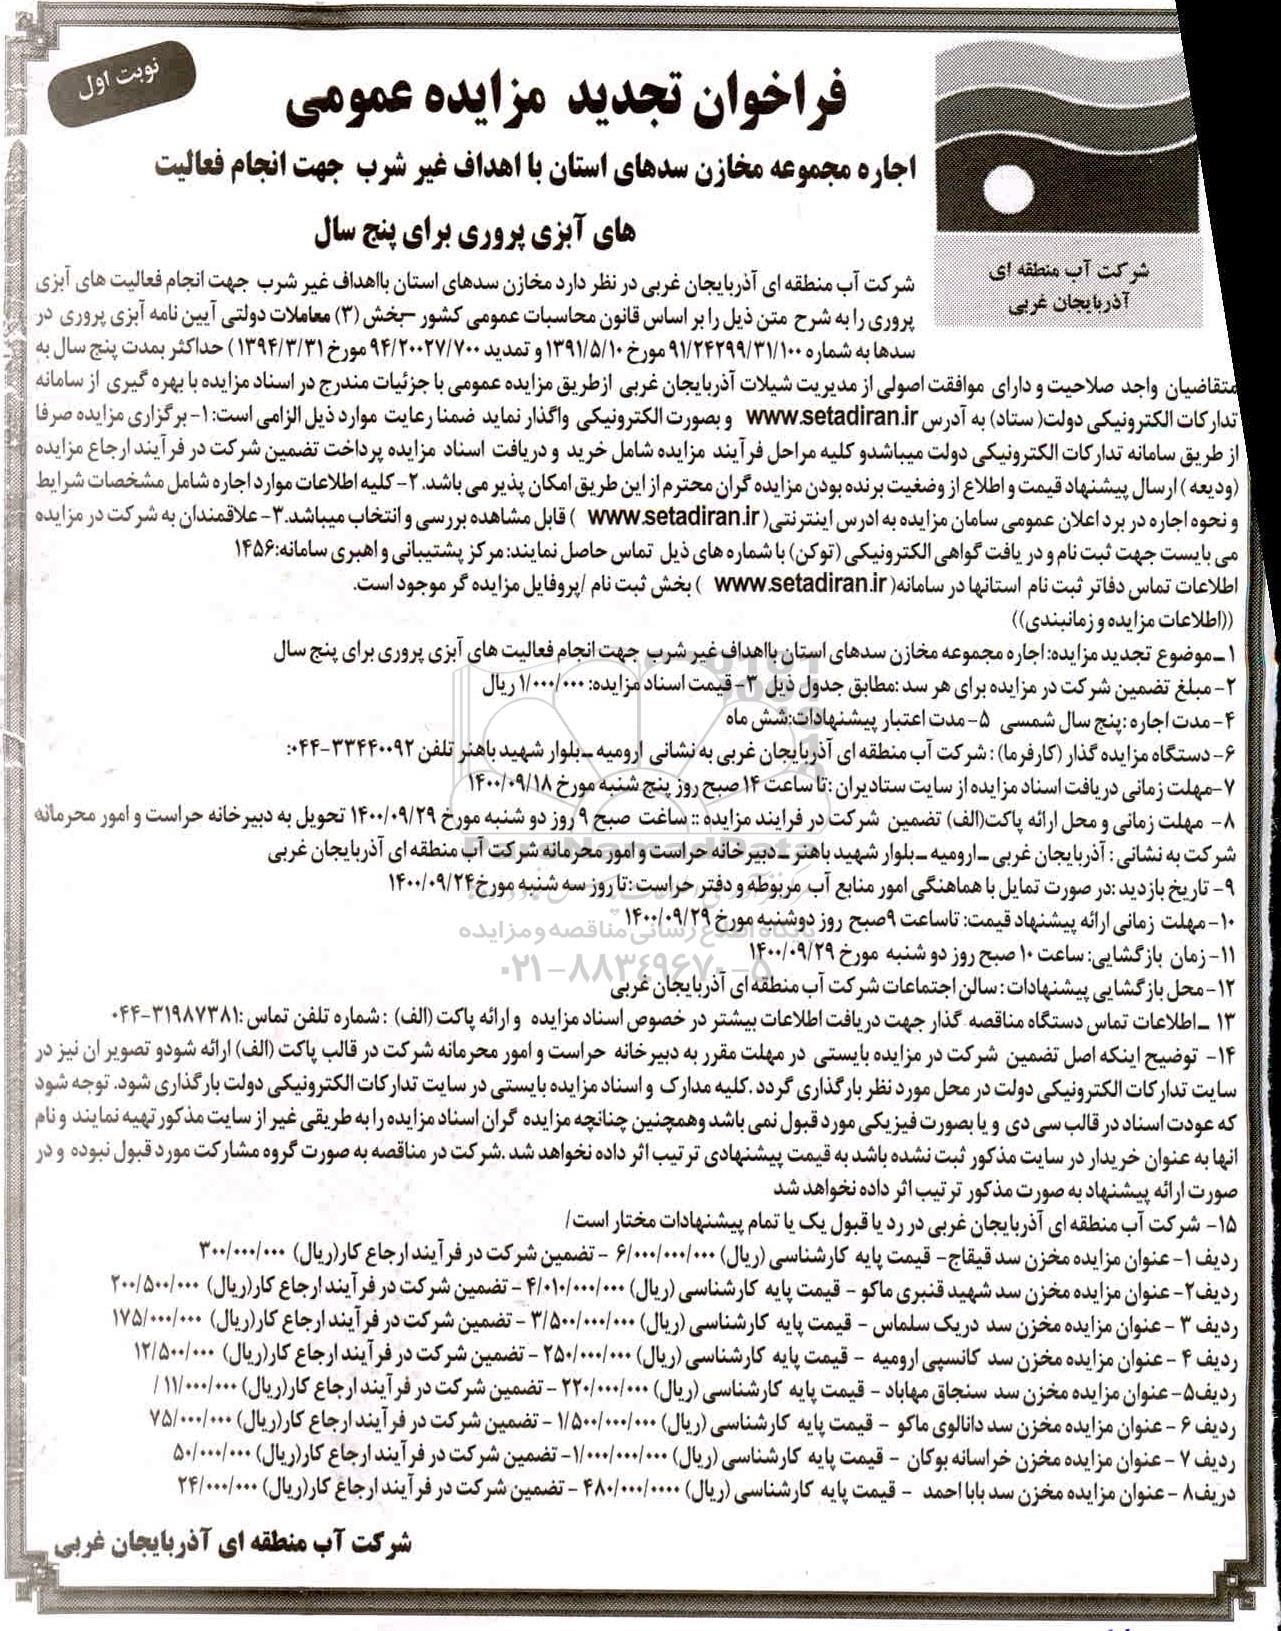 نوبت اول
فراخوان تجدید مزایده عمومی
اجاره مجموعه مخازن سدهای استان با اهداف غیر شرب جهت انجام فعالیت
های آبزی پروری برای پنج سال
شرکت آب منطقه ای
آذربایجان غربی
شرکت آب منطقه ای آذربایجان غربی در نظر دارد مخازن سدهای استان بااهداف غیر شرب جهت انجام فعالیت های آبزی
پروری را به شرح متن ذیل را بر اساس قانون محاسبات عمومی کشور –بخش (۳) معاملات دولتی آیین نامه آبزی پروری در
سدها به شماره ۹۱/۲۴۲۹۹/۳۱/۱۰۰ مورخ ۱۳۹۱/۵/۱۰ و تمدید ۹۴/۲۰۰۲۷/۷۰۰ مورخ ۱۳۹۴/۳/۳۱) حداکثر بمدت پنج سال به
متقاضیان واجد صلاحیت و دارای موافقت اصولی از مدیریت شیلات آذربایجان غربی ازطریق مزایده عمومی با جزئیات مندرج در اسناد مزایده با بهره گیری از سامانه
تدارکات الکترونیکی دولت( ستاد) به آدرس www.setadiran.ir وبصورت الکترونیکی واگذار نماید ضمنا رعایت موارد ذیل الزامی است: ۱- برگزاری مزایده صرفا
از طریق سامانه تدارکات الکترونیکی دولت میباشدو کلیه مراحل فرآیند مزایده شامل خرید و دریافت اسناد مزایده پرداخت تضمین شرکت در فرآیند ارجاع مزایده
(ودیعه ) ارسال پیشنهاد قیمت و اطلاع از وضغیت برنده بودن مزایده گران محترم از این طریق امکان پذیر می باشد. ۲- کلیه اطلاعات موارد اجاره شامل مشخصات شرایط
و نحوه اجاره در برد اعلان عمومی سامان مزایده به ادرس اینترنتی( www.setadiran.ir ) قابل مشاهده بررسی و انتخاب میباشد.۳- علاقمندان به شرکت در مزایده
می بایست جهت ثبت نام و در یافت گواهی الکترونیکی (توکن) با شماره های ذیل تماس حاصل نمایند: مرکز پشتیبانی و اهبری سامانه:۱۴۵۶
اطلاعات تماس دفاتر ثبت نام استانها در سامانه( www.setadiran.ir ) بخش ثبت نام /پروفایل مزایده گر موجود است.
((اطلاعات مزایده و زمانبندی))
۱ـ موضوع تجدید مزایده: اجاره مجموعه مخازن سدهای استان بااهداف غیر شرب جهت انجام فعالیت های آبزی پروری برای پنج سال
۲- مبلغ تضمین شرکت در مزایده برای هر سد :مطابق جدول ذیل ۳- قیمت اسناد مزایده: ۱/۰۰۰/۰۰۰ ریال
۴- مدت اجاره :پنج سال شمسی ۵- مدت اعتبار پیشنهادات:شش ماه
۶- دستگاه مزایده گذار (کارفرما) : شرکت آب منطقه ای آذربایجان غربی به نشانی ارومیه ـ بلوار شهید باهنر تلفن ۳۳۴۴۰۰۹۲-۰۴۴:
۷-مهلت زمانی دریافت اسناد مزایده از سایت ستادیران :تا ساعت ۱۴ صبح روز پنج شنبه مورخ ۱۴۰۰/۰۹/۱۸
۸- مهلت زمانی و محل ارائه پاکت(الف) تضمین شرکت در فرایند مزایده :: ساعت صبح ۹ روز دو شنبه مورخ ۱۴۰۰/۰۹/۲۹ تحویل به دبیرخانه حراست و امور محرمانه
شرکت به نشانی : آذربایجان غربی ـ ارومیه ـ بلوار شهید باهنر ـ دبیرخانه حراست و امور محرمانه شرکت آب منطقه ای آذربایجان غربی
۹- تاریخ بازدید :در صورت تمایل با هماهنگی امور منابع آب مربوطه و دفتر حراست :تا روز سه شنبه مورخ۱۴۰۰/۰۹/۲۴
۱۰- مهلت زمانی ارائه پیشنهاد قیمت: تاساعت ۹صبح روز دوشنبه مورخ ۱۴۰۰/۰۹/۲۹
۱۱- زمان بازگشایی: ساعت ۱۰ صبح روز دو شنبه مورخ ۱۴۰۰/۰۹/۲۹
۱۲- محل بازگشایی پیشنهادات : سالن اجتماعات شرکت آب منطقه ای آذربایجان غربی
۱۳ ـ اطلاعات تماس دستگاه مناقصه گذار جهت دریافت اطلاعات بیشتر در خصوص اسناد مزایده و ارائه پاکت (الف) : شماره تلفن تماس :۳۱۹۸۷۳۸۱-۰۴۴
۱۴- توضیح اینکه اصل تضمین شرکت در مزایده بایستی در مهلت مقرر به دبیرخانه حراست و امور محرمانه شرکت در قالب پاکت (الف) ارائه شودو تصویر ان نیز در
سایت تدارکات الکترونیکی دولت در محل مورد نظر بارگذاری گردد .کلیه مدارک و اسناد مزایده بایستی در سایت تدارکات الکترونیکی دولت بارگذاری شود. توجه شود
که عودت اسناد در قالب سی دی و یا بصورت فیزیکی مورد قبول نمی باشد وهمچنین چنانچه مزایده گران اسناد مزایده را به طریقی غیر از سایت مذکور تهیه نمایند و نام
انها به عنوان خریدار در سایت مذکور ثبت نشده باشد به قیمت پیشنهادی ترتیب اثر داده نخواهد شد .شرکت در مناقصه به صورت گروه مشارکت مورد قبول نبوده و در
صورت ارائه پیشنهاد به صورت مذکور ترتیب اثر داده نخواهد شد
۱۵- شرکت آب منطقه ای آذربایجان غربی در رد یا قبول یک یا تمام پیشنهادات مختار است/
ردیف ۱- عنوان مزایده مخزن سد قیقاج- قیمت پایه کارشناسی (ریال) ۶/۰۰۰/۰۰۰/۰۰۰ - تضمین شرکت در فرآیند ارجاع کار(ریال) ۳۰۰/۰۰۰/۰۰۰
ردیف۲- عنوان مزایده مخزن سد شهید قنبری ماکو - قیمت پایه کارشناسی (ریال) ۴/۰۱۰/۰۰۰/۰۰۰ - تضمین شرکت در فرآیند ارجاع کار(ریال) ۲۰۰/۵۰۰/۰۰۰
ردیف ۳ - عنوان مزایده مخزن سد دریک سلماس - قیمت پایه کارشناسی (ریال) ۳/۵۰۰/۰۰۰/۰۰۰ - تضمین شرکت در فرآیند ارجاع کار(ریال) ۱۷۵/۰۰۰/۰۰۰
ردیف ۴ - عنوان مزایده مخزن سد کانسپی ارومیه - قیمت پایه کارشناسی (ریال) ۲۵۰/۰۰۰/۰۰۰ - تضمین شرکت در فرآیند ارجاع کار(ریال) ۱۲/۵۰۰/۰۰۰
ردیف۵- عنوان مزایده مخزن سد سنجاق مهاباد - قیمت پایه کارشناسی (ریال) ۲۲۰/۰۰۰/۰۰۰ - تضمین شرکت در فرآیند ارجاع کار(ریال) ۱۱/۰۰۰/۰۰۰ /
ردیف ۶ - عنوان مزایده مخزن سد دانالوی ماکو - قیمت پایه کارشناسی (ریال) ۱/۵۰۰/۰۰۰/۰۰۰ - تضمین شرکت در فرآیند ارجاع کار(ریال) ۷۵/۰۰۰/۰۰۰
ردیف ۷ - عنوان مزایده مخزن خراسانه بوکان - قیمت پایه کارشناسی (ریال) ۱/۰۰۰/۰۰۰/۰۰۰- تضمین شرکت در فرآیند ارجاع کار(ریال) ۵۰/۰۰۰/۰۰۰
دریف۸ - عنوان مزایده مخزن سد بابا احمد - قیمت پایه کارشناسی (ریال) ۴۸۰/۰۰۰/۰۰۰۰ - تضمین شرکت در فرآیند ارجاع کار(ریال) ۲۴/۰۰۰/۰۰۰
شرکت آب منطقه ای آذربایجان غربی
ParsNamadData
پایگاه اطلاع رسانی مناقصه و مزایده
۰۲۱-۸۸۳۴۹۶۷۰-۵